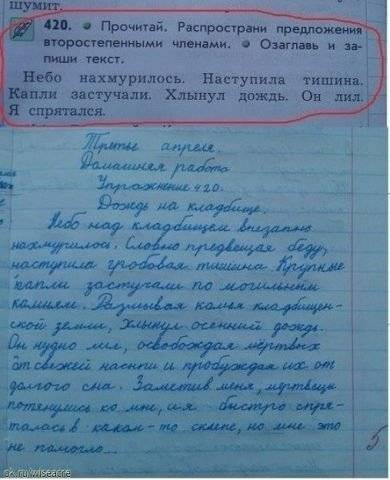 шумит.
420. • Прочитай. Распространи предложения
второстепенными членами. • Озаглавь и за-
пиши текст.
Небо нахмурилось. Наступила тишина.
Капли застучали. Хлынул дождь. Он лил.
Я спрятался.
Третье апреля.
Домашняя работа
Упражнение 420.
Дождь на кладбище.
Небо над кладбищем внезапно
нахмурилось. Словно предвещая беду,
наступила гробовая тишина. Крупные
капли застучали по могильным
камням. Размывая комья кладбищен-
ской земли, хлынул осенний дождь.
Он нудно лил, освобождая мёртвых
от свежей насыпи и пробуждая их от
долгого сна. Заметив меня, мертвецы
потянулись ко мне, и я быстро спря-
талась в каком-то склепе, но мне это
не помогло...
5
ok.ru/wiseacre